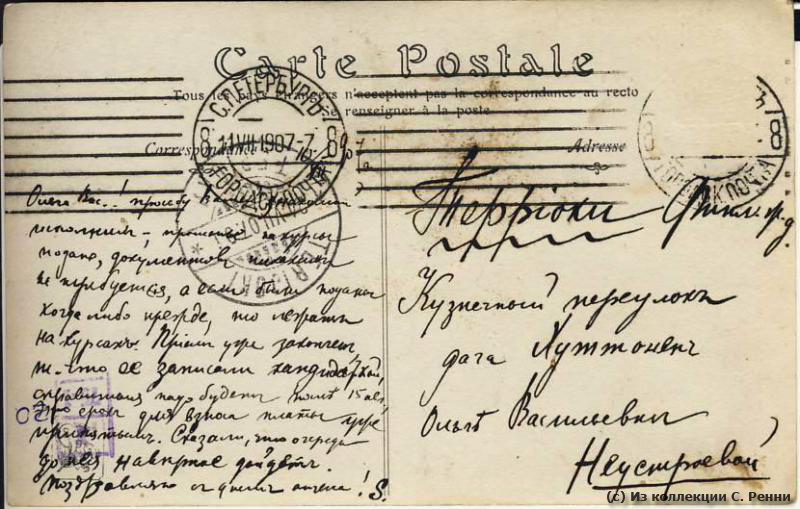 Carte Postale
Tous les pays étrangers n'acceptent pas la correspondance au recto
Se renseigner à la poste
Correspondance
Adresse
С.ПЕТЕРБУРГЪ
8 11 VII 1907-7 8
ГОРОДСК. ПОЧТА
8
ГОРОДСК. ПОЧТА
TERIJOKI
Ольга Вас.! просьбу Вашу
исполнил – прошеніе на курсы
подано, документовъ никакихъ
не требуется, а если были поданы
когда либо прежде, то лежатъ
на курсахъ. Пріемъ уже законченъ,
но ее записали кандидаткой,
справиться надо будетъ послѣ 15 авг.
Это срокъ для взноса платы уже
принятымъ. Сказали, что очередь
до нея навѣрное дойдетъ.
Поздравляю съ днемъ ангела! S.
Терріоки Финлянд.
Кузнечный переулокъ
дача Хуттоненъ
Ольгѣ Васильевнѣ
Неустроевой
(c) Из коллекции С. Ренни